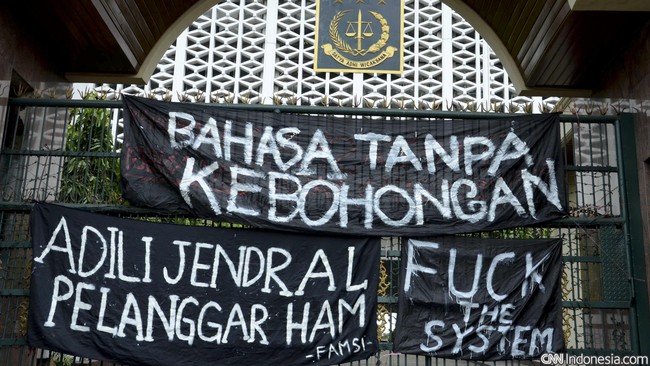 BAHASA TANPA
KEBOHONGAN
ADILI JENDRAL
PELANGGAR HAM
-FAMSI-
FUCK
THE
SYSTEM
CNN Indonesia.com